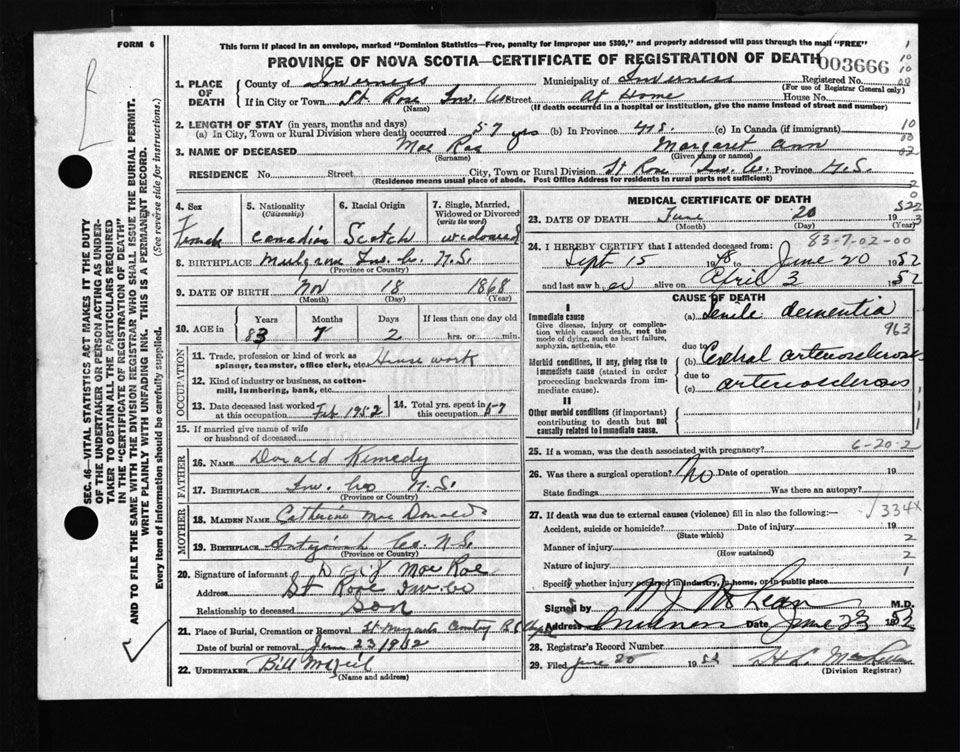 FORM 6
This form if placed in an envelope, marked "Dominion Statistics—Free, penalty for improper use $300," and properly addressed will pass through the mail "FREE"
PROVINCE OF NOVA SCOTIA—CERTIFICATE OF REGISTRATION OF DEATH
003666
Registered No.
(For use of Registrar General only)
1. PLACE OF DEATH
County of Inverness Municipality of Inverness
If in City or Town St Rose Inv. Co Street At Home House No.
(Name) (If death occurred in a hospital or institution, give the name instead of street and number)
2. LENGTH OF STAY (in years, months and days)
(a) In City, Town or Rural Division where death occurred 57 yrs (b) In Province (c) In Canada (if immigrant)
3. NAME OF DECEASED Mac Rae Margaret Ann
(Surname) (Given name or names)
RESIDENCE No. Street City, Town or Rural Division St Rose Inv. Co. Province N.S.
(Residence means usual place of abode. Post Office Address for residents in rural parts not sufficient)
SEC. 46—VITAL STATISTICS ACT MAKES IT THE DUTY
OF THE UNDERTAKER OR PERSON ACTING AS UNDER-
TAKER TO OBTAIN ALL THE PARTICULARS REQUIRED
IN THE "CERTIFICATE OF REGISTRATION OF DEATH"
AND TO FILE THE SAME WITH THE DIVISION REGISTRAR WHO SHALL ISSUE THE BURIAL PERMIT.
WRITE PLAINLY WITH UNFADING INK. THIS IS A PERMANENT RECORD.
Every item of information should be carefully supplied. (See reverse side for instructions.)
4. Sex Female
5. Nationality (Citizenship) Canadian
6. Racial Origin Scotch
7. Single, Married, Widowed or Divorced (write the word) widowed
8. BIRTHPLACE Inv. Co. N.S.
(Province or Country)
9. DATE OF BIRTH Nov 18 1868
(Month) (Day) (Year)
10. AGE in Years Months Days If less than one day old
83 7 2 hrs. or min.
OCCUPATION
11. Trade, profession or kind of work as spinner, teamster, office clerk, etc. House work
12. Kind of industry or business, as cotton-mill, lumbering, bank, etc.
13. Date deceased last worked at this occupation Feb 1952
14. Total yrs. spent in this occupation 57
15. If married give name of wife or husband of deceased
FATHER
16. NAME Donald Kennedy
17. BIRTHPLACE Inv. Co N.S.
(Province or Country)
MOTHER
18. MAIDEN NAME Catherine Mac Donald
19. BIRTHPLACE Antigonish Co. N.S.
(Province or Country)
20. Signature of informant Mac Rae
Address St Rose Inv. Co
Relationship to deceased Son
21. Place of Burial, Cremation or Removal
Date of burial or removal June 23 1952
22. UNDERTAKER Bill
(Name and address)
MEDICAL CERTIFICATE OF DEATH
23. DATE OF DEATH June 20 1952
(Month) (Day)
83-7-02-00
24. I HEREBY CERTIFY that I attended deceased from:
Sept 15 1948 to June 20 1952
and last saw her alive on April 3 1952
CAUSE OF DEATH
I
Immediate cause
Give disease, injury or complication which caused death, not the mode of dying, such as heart failure, asphyxia, asthenia, etc
(a) Senile dementia
963
due to
Morbid conditions, if any, giving rise to immediate cause (stated in order proceeding backwards from immediate cause).
(b) Cerebral arteriosclerosis
due to
(c) arteriosclerosis
II
Other morbid conditions (if important) contributing to death but not causally related to immediate cause.
6-20-2
25. If a woman, was the death associated with pregnancy?
26. Was there a surgical operation? No Date of operation 19
State findings Was there an autopsy?
27. If death was due to external causes (violence) fill in also the following:—
334X
Accident, suicide or homicide? Date of injury 19
(State which)
Manner of injury 2
(How sustained)
Nature of injury 2
Specify whether injury occurred in industry, in home, or in public place 1
Signed by M.D.
Address Inverness Date June 23 1952
28. Registrar's Record Number
29. Filed June 20 1952
(Division Registrar)